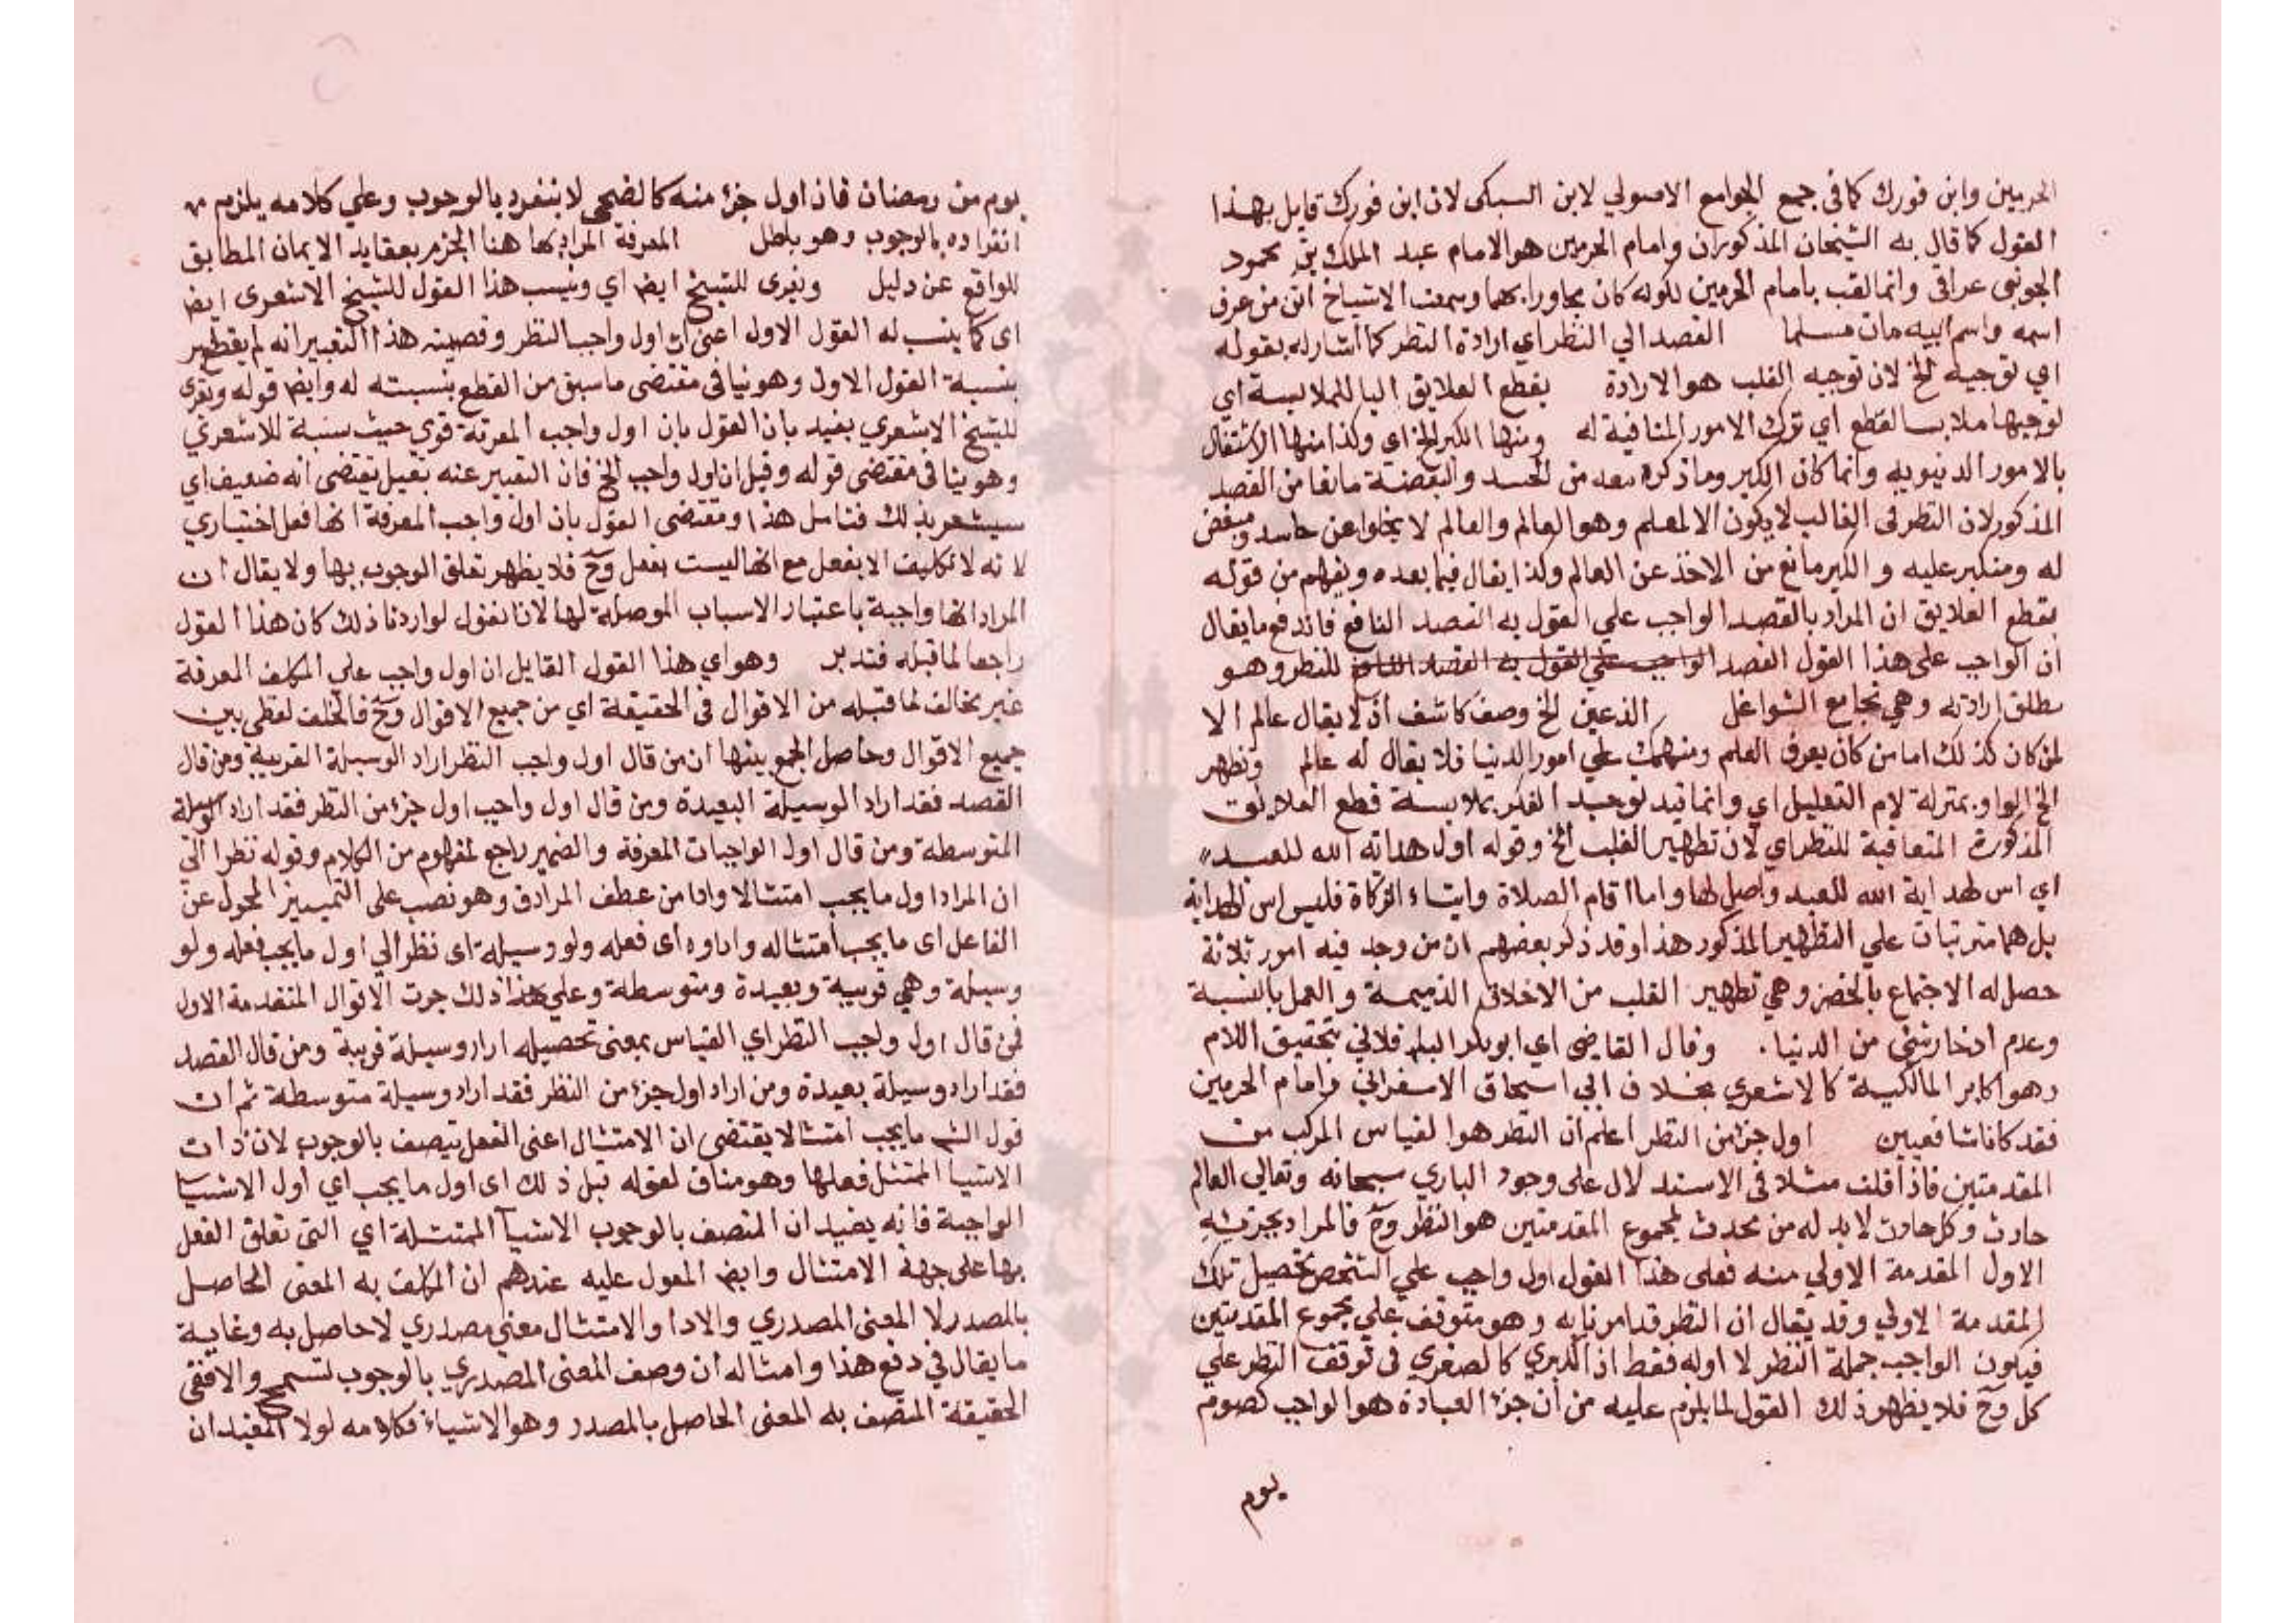 الحرمين وابن فورك كما في جمع الجوامع الاصولي لابن السبكى لان ابن فورك قايل بهذا
القول كما قال به الشيخان المذكوران وامام الحرمين هو الامام عبد الملك بن محمود
الجويني عراقى وانما لقب بامام الحرمين لكونه كان مجاورا بهما وسمعت الاشياخ ان من عرف
اسمه واسم ابيه مات مسلما القصد الي النظر اي ارادة النظر كما اشار له بقوله
اي توجيه الخ لان توجيه القلب هو الارادة بقطع العلايق البا للملابسة اي
توجيها ملابسا لقطع اي ترك الامور المنافية له ومنها الكبر الخ اى وكذا منها الاشتغال
بالامور الدنيويه وانما كان الكبر وما ذكره بعده من الحسد والبغضة مانعا من القصد
المذكور لان النظر في الغالب لا يكون الا لمعلم وهو العالم والعالم لا يخلوا عن حاسد ومبغض
له ومتكبر عليه و الكبر مانع من الاخذ عن العالم وكذا يقال فيما بعده ويفهم من قوله
بقطع العلايق ان المراد بالقصد الواجب علي القول به القصد النافع فاندفع ما يقال
ان الواجب على هذا القول القصد الواجب علي القول به القصد للنظر وهو
مطلق ارادته وهي تجامع الشواغل الذعين الخ وصف كاشف اذ لا يقال عالم الا
لمن كان كذلك اما من كان يعرف العلم ومنهمك علي امور الدنيا فلا يقال له عالم وتطهر
الخ الواو بمنزلة لام التعليل اي وانما قيد توجيه الفكر بملابسة قطع العلايق
المذكورة المنافية للنظر اي لان تطهير القلب الخ وقوله اول هداية الله للعبد
اي اس لهداية الله للعبد واصل لها واما اقام الصلاة وايتاء الزكاة فليس اس الهداية
بل هما مترتبات علي التطهير المذكور هذا وقد ذكر بعضهم ان من وجد فيه امور ثلاثة
حصل له الاجتماع بالخضر وهي تطهير القلب من الاخلاق الذميمة والعمل بالنسبة
وعدم ادخار شي من الدنيا. وقال القاضي اي ابو بكر الباقلاني بتحقيق اللام
وهو اكابر المالكية كالاشعري بخلاف ابي اسحاق الاسفراني وامام الحرمين
فقد كانا شافعيين اول جزء من النظر اعلم ان النظر هو القياس المركب من
المقدمتين فاذا قلت مثلا في الاستدلال على وجود الباري سبحانه وتعالى العالم
حادث وكل حادث لا بد له من محدث لمجموع المقدمتين هو النظر وح فالمراد بجزئيه
الاول المقدمة الاولي منه فعلى هذا القول اول واجب علي الشخص تحصيل تلك
المقدمة الاولي وقد يقال ان النظر قد امرنا به وهو متوقف علي مجموع المقدمتين
فيكون الواجب جملة النظر لا اوله فقط اذ الكبري كالصغري في توقف النظر علي
كل وح فلا يظهر ذلك القول لما يلزم عليه من ان جزء العبادة هو الواجب كصوم
يوم
يوم من رمضان فان اول جزء منه كالضحي لا ينفرد بالوجوب وعلي كلامه يلزم
انفراده بالوجوب وهو باطل المعرفة المراد بها هنا الجزم بعقايد الايمان المطابق
للواقع عن دليل ويعزى للشيخ ايض اي وينسب هذا القول للشيخ الاشعرى ايض
اى كما ينسب له القول الاول اعنى ان اول واجب النظر وقضيته هذا التعبير انه لم يقطع
بنسبة القول الاول وهو ينافى مقتضى ما سبق من القطع بنسبته له وايض قوله ويعزى
للشيخ الاشعري يفيد بان القول بان اول واجب المعرفة قوي حيث نسبة للاشعري
وهو ينافى مقتضى قوله وقيل ان اول واجب الخ فان التعبير عنه بقيل يقتضى انه ضعيف اي
سيشعر بذلك فتامل هذا ومقتضى القول بان اول واجب المعرفة انها فعل اختياري
لانه لا تكليف الا بفعل مع انها ليست بفعل وح فلا يظهر تعلق الوجوب بها ولا يقال ان
المراد انها واجبة باعتبار الاسباب الموصلة لها لانا نقول لو اردنا ذلك كان هذا القول
راجعا لما قبله فتدبر وهو اي هذا القول القايل ان اول واجب علي المكلف المعرفة
غير مخالف لما قبله من الاقوال في الحقيقة اي من جميع الاقوال وح فالخلف لفظي بين
جميع الاقوال وحاصل الجمع بينها ان من قال اول واجب النظر اراد الوسيلة القريبة ومن قال
القصد فقد اراد الوسيلة البعيدة ومن قال اول واجب اول جزء من النظر فقد اراد الوسيلة
المتوسطة ومن قال اول الواجبات المعرفة والضمير راجع لمفهوم من الكلام وقوله نظرا الي
ان المراد اول ما يجب امتثالا وادا من عطف المرادف وهو نصب على التمييز المحول عن
الفاعل اى ما يجب امتثاله واداوه اى فعله ولو وسيلة اى نظر الي اول ما يجب فعله ولو
وسيلة وهي قريبة وبعيدة ومتوسطة وعلي هذا ذلك جرت الاقوال المتقدمة الاول
فمن قال اول واجب النظر اي القياس بمعنى تحصيله اراد وسيلة قريبة ومن قال القصد
فقد اراد وسيلة بعيدة ومن اراد اول جزء من النظر فقد اراد وسيلة متوسطة ثم ان
قول الش ما يجب امتثالا يقتضى ان الامتثال اعنى الفعل يتصف بالوجوب لان ذات
الاشيا الممتثل فعلها وهو مناف لقوله قبل ذلك اى اول ما يجب اي اول الاشيا
الواجبة فانه يفيد ان المتصف بالوجوب الاشيآ الممتثلة اي التي تعلق الفعل
بها على جهة الامتثال وايض المعول عليه عندهم ان المكلف به المعنى الحاصل
بالمصدر لا المعنى المصدري والادا والامتثال معنى مصدري لا حاصل به وغاية
ما يقال في دفع هذا وامثاله ان وصف المعنى المصدري بالوجوب تسمح والا ففى
الحقيقة المتصف به المعنى الحاصل بالمصدر وهو الاشياء فكلامه لولا المفيد ان